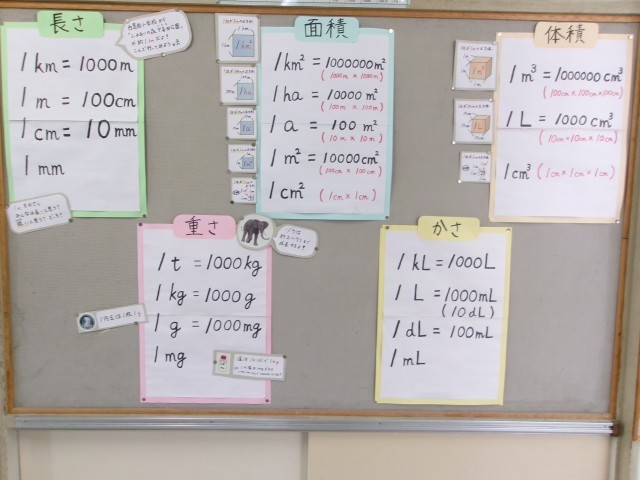 長さ
1km = 1000m
1m = 100cm
1cm = 10mm
1mm
面積
1km² = 1000000m²
(1000m × 1000m)
1ha = 10000m²
(100m × 100m)
1a = 100m²
(10m × 10m)
1m² = 10000cm²
(100cm × 100cm)
1cm² (1cm × 1cm)
体積
1m³ = 1000000cm³
(100cm × 100cm × 100cm)
1L = 1000cm³
(10cm × 10cm × 10cm)
1cm³ (1cm × 1cm × 1cm)
重さ
1t = 1000kg
1kg = 1000g
1g = 1000mg
1mg
1円玉は1枚1g
かさ
1kL = 1000L
1L = 1000mL
(10dL)
1dL = 100mL
1mL